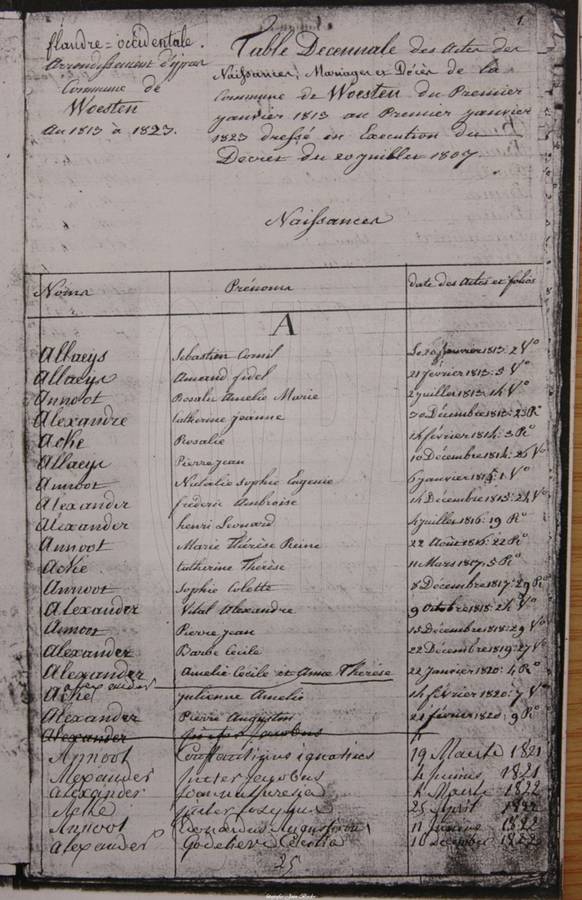 1.
flandre=occidentale.
Arrondissement d'ypres
Commune de
Woesten
An 1813 à 1823.
Table Decennale des Actes de
Naissances, Mariages et Décès de la
Commune de Woesten du Premier
janvier 1813 au Premier janvier
1823 dressé en Execution du
Décret du 20 juillet 1807.
Naissances
Noms Prénoms date des Actes et folios
A
Allaeys Sebastien Cornil 1813. 2 Vo
Allaeys Amand fidel 21 février 1813. 5 Vo
Annoot Rosalie Amelie Marie 2 juillet 1813. 14 Vo
Alexandre Catherine jeanne 30 Décembre 1813. Ro
Ache Rosalie 14 février 1814. 3 Ro
Allaeys Pierre jean 10 Décembre 1814. 25 Vo
Annoot Natalie Sophie Eugenie 6 janvier 1815. 1 Vo
Alexander fréderic Ambroise 14 Décembre 1815. 24 Vo
Alexander henri Leonard 4 juillet 1816. 19 Ro
Annoot Marie Thérèse Reine 22 Août 1816. 22 Ro
Ache Catherine Thérèse 11 Mars 1817. 5 Ro
Annoot Sophie Colette 8 Décembre 1817. 29 Ro
Alexander Vital Alexandre 9 Octobre 1818. 24 Vo
Annoot Pierre jean 15 Décembre 1818. 29 Vo
Alexander Barbe Cecile 22 Décembre 1819. 27 Vo
Alexander Amelie Cecile et Anne Thérèse 22 Janvier 1820. 4 Ro
Ache julienne Amelie 14 février 1820. 7 Vo
Alexander Pierre Augustin 21 février 1820. 9 Ro
Alexander jacobus
Annoot Constantinus ignatius 19 Maerte 1821
Alexander pieter jacobus 4 junius 1821
Alexander Joanna theresia Maerte 1822
Ache pieter 25 April 1822
Annoot Augustinus 11 1822
Alexander Godelieve Cecilia 10 december 1822
25